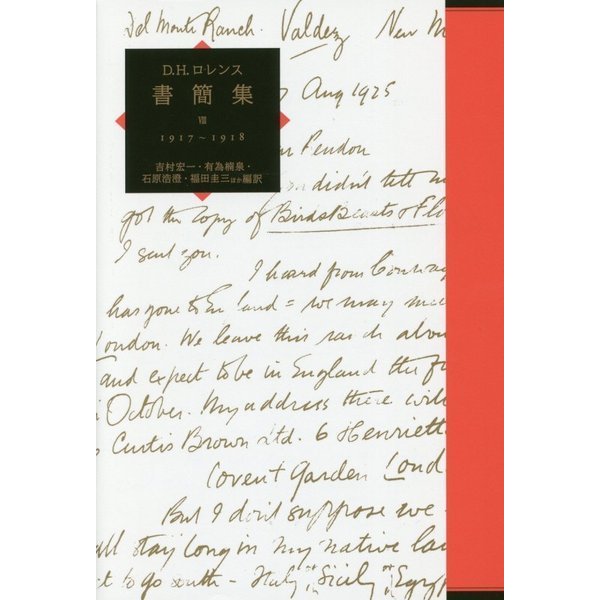 Del Monte Ranch. Valdez New M
D.H.ロレンス
書簡集
Ⅷ
1917～1918
吉村宏一・有為楠泉・
石原浩澄・福田圭三ほか編訳
Aug 1925
Pendon
didn't tell m
got the copy of Birds Beasts & Flo
I sent you.
I heard from Conway
has gone to England = we may
London. We leave this ranch abou
and expect to be in England the f
October. My address there will
Curtis Brown Ltd. 6 Henriett
Covent Garden Lond
But I don't suppose we
all stay long in my native la
to go south - Italy, Sicily, Egyp